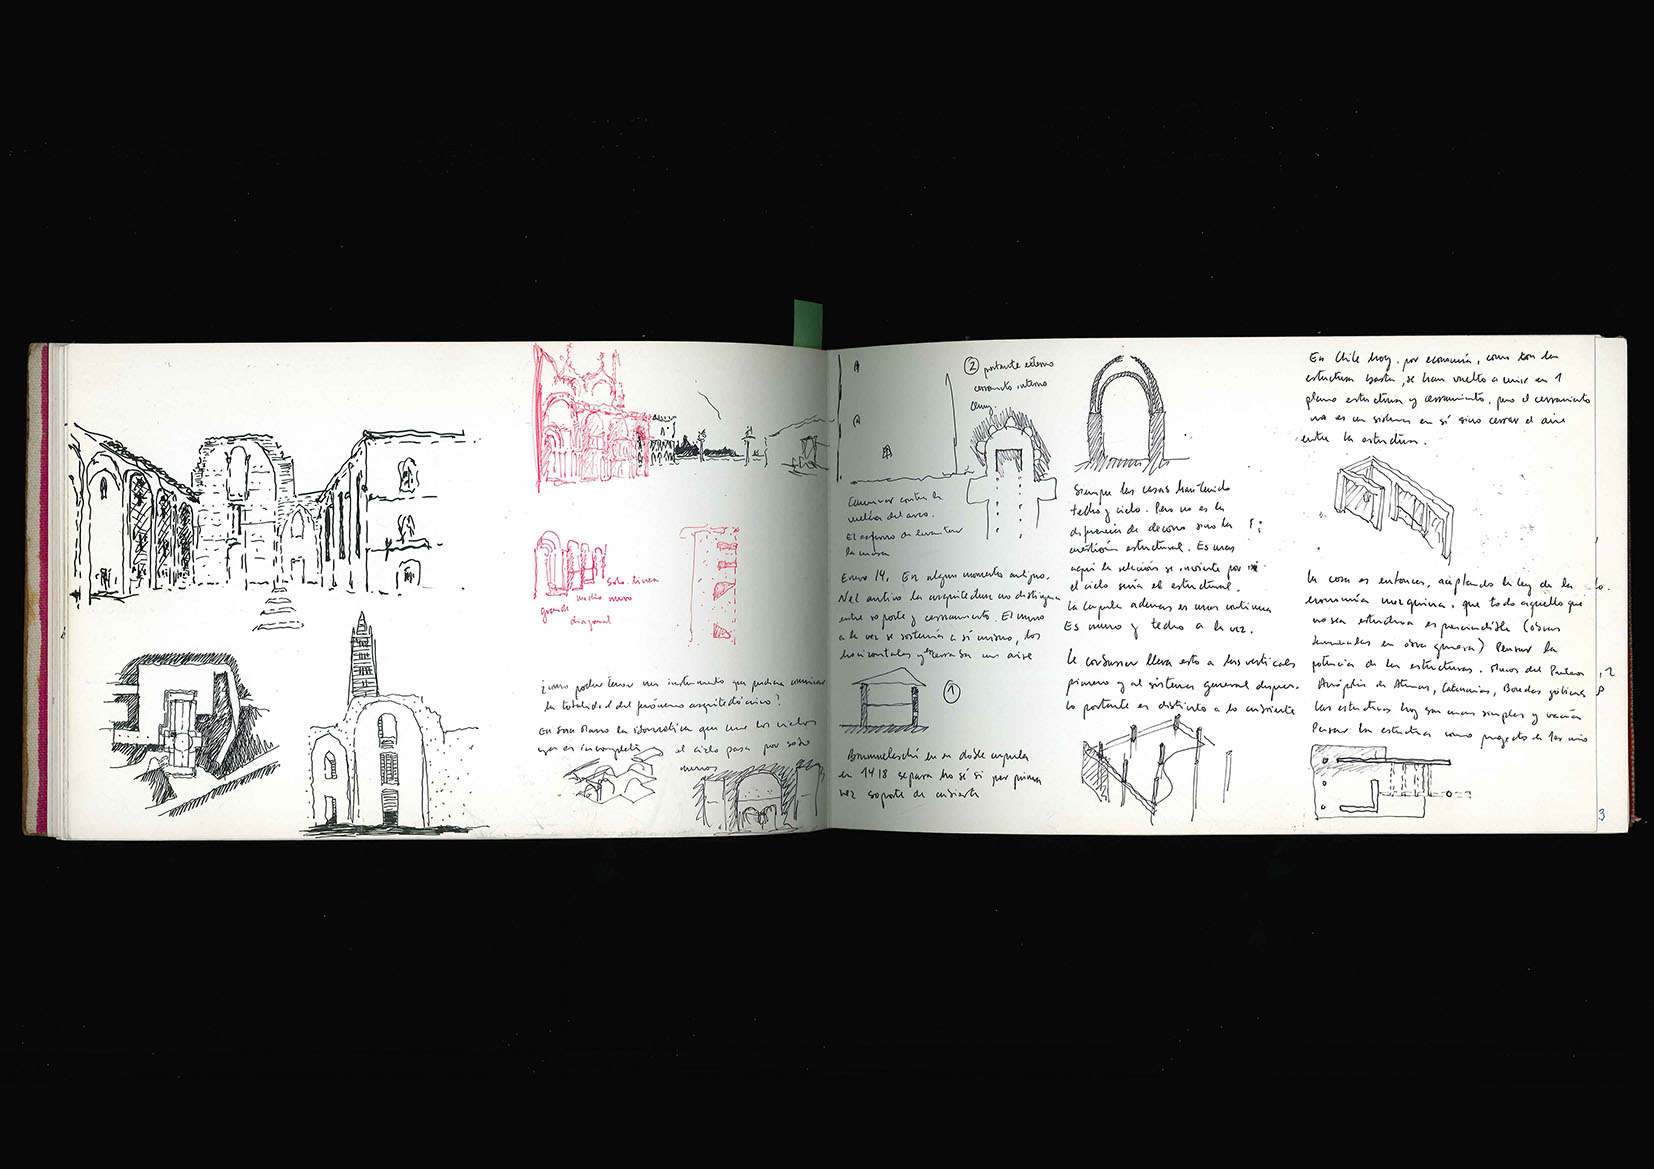 Sola linea
medio muro
grande
diagonal
¿como poder tener un instrumento que pudiera comunicar
la totalidad del fenómeno arquitectónico?
En San Marco la isometrica que une los cielos
es incompleta el cielo pasa por sobre
muros
A
② portante externo
cerramiento interno
Caminar contra la
vuelta del arco.
El esfuerzo de levantar
la
Enero 14. En algun momento antiguo.
la arquitectura no distinguia
entre soporte y cerramiento. El muro
a la vez se sostenia a si mismo, los
horizontales y cerraba un aire
①
Brunelleschi en su doble cupula
en 1418 separa no sé si por primera
vez soporte de cubierta
Siempre las casas han tenido
techo y cielo. Pero no es la
de decoro sino la
cuestión estructural. Es mas
aqui la relacion se invierte por
el cielo seria el estructural.
La cupula ademas es una continua
Es muro y techo a la vez.
Le Corbusier lleva esto a las verticales
primero y al sistema general despues.
lo portante es distinto a lo cubriente
En Chile hoy, por economía, como con la
estructura basta, se han vuelto a unir en 1
plano estructura y cerramiento, pero el cerramiento
no es un sistema en sí sino cerrar el aire
entre la estructura.
La cosa es entonces, aceptando la ley de la
economía mezquina, que todo aquello que
no sea estructura es prescindible (obras
terminales en obra gruesa) Pensar la
potencia de las estructuras. Muros del Panteon
de Atenas, Catenarias, Bovedas góticas
Las estructuras hoy son mas simples y vacías
Pensar la estructura como proyecto en si
3